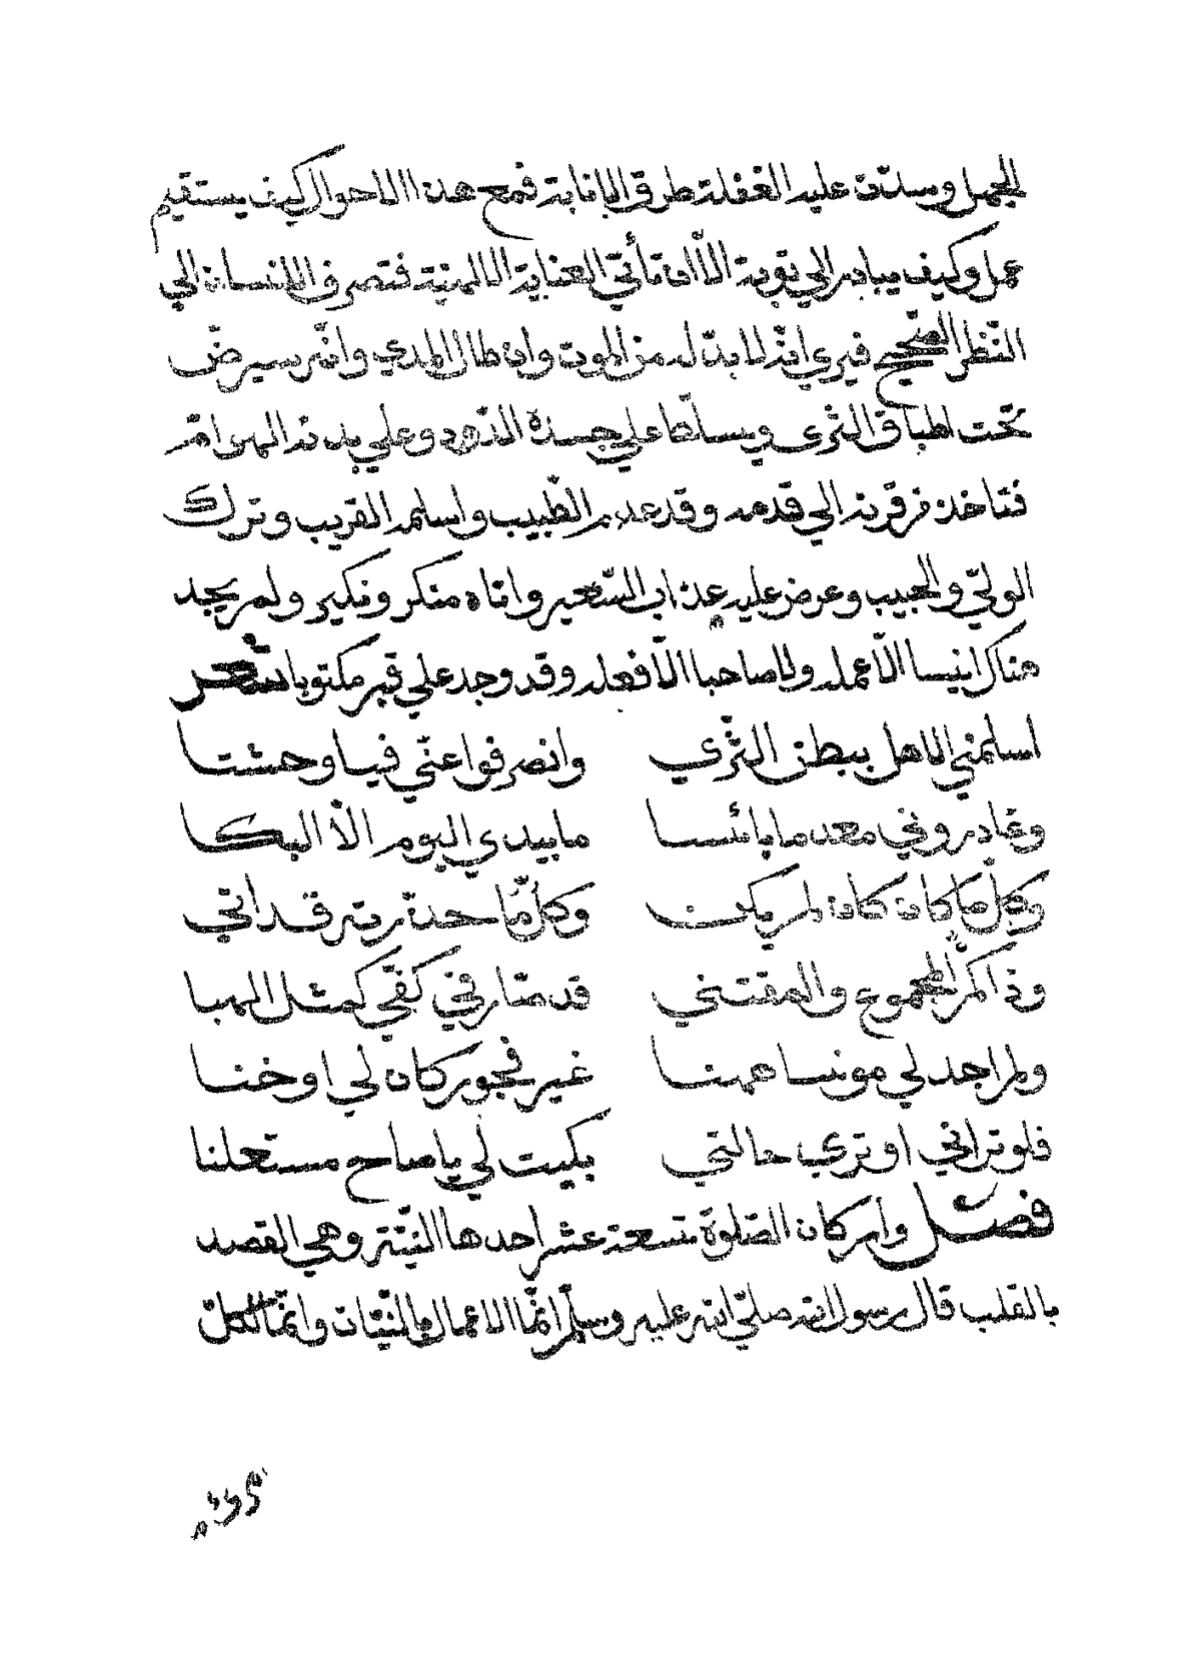 الجهل وسدّت عليه الغفلة طرق الإنابة فمع هذا الاحوال كيف يستقيم
عمل وكيف يبادر الي توبة الّا ان تأتي العناية الالهية فتصرف الانسان الي
النّظر الصّحيح فيري انّه لا بدّ له من الموت وان طال المدي وانّه سيرضّ
تحت اطباق الثري ويسلّط علي جسده الدّود وعلي بدنه الهوامّ
فتاخذ من قرنه الي قدمه وقد عدم الطّبيب واسلمه القريب وترك
الوليّ والحبيب وعرض عليه عذاب السّعير واتاه منكر ونكير ولم يجد
هناك انيسا الّا عمله ولا صاحبا الّا فعله وقد وجد علي قبر مكتوبا شعر
اسلمني الاهل ببطن الثّري وانصرفوا عنّي فيا وحشتا
وغادروني معدما بائسا ما بيدي اليوم الّا البكا
وكلّ ما كان كان لم يكن وكلّ ما حذرته قد اتي
وذاكم المجموع والمقتني قد صار في كفّي كمثل الهبا
ولم اجد لي مونسا ههنا غير فجور كان لي او خنا
فلو تراني او تري حالتي بكيت لي يا صاح مستعلنا
فصل واركان الصّلوة تسعة عشر احدها النيّة وهي القصد
بالقلب قال رسول الله صلّي الله عليه وسلّم انّما الاعمال بالنيّات وانّما لكلّ